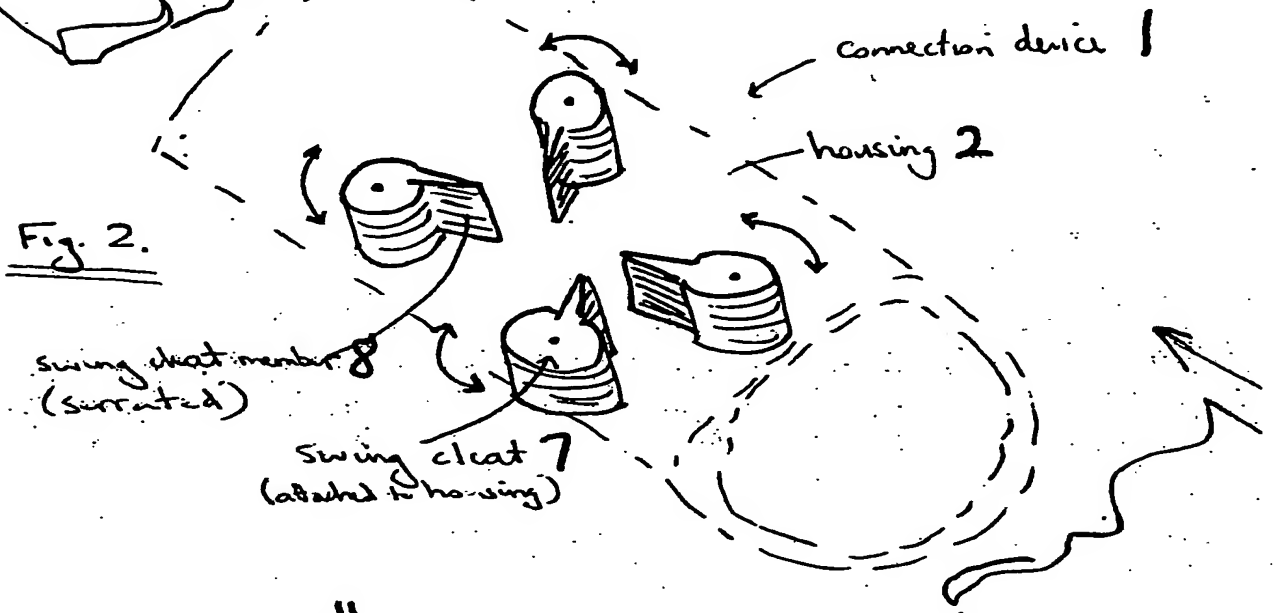 connection device 1
housing 2
Fig. 2.
swing cleat member 8
(serrated)
swing cleat 7
(attached to housing)
11